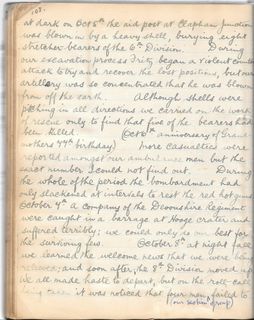 at dark on Oct 5th the aid post at Clapham Junction
was blown in by a heavy shell, burying eight
stretcher bearers of the 6th Division. During
our excavation process Fritz began a violent counter
attack to try and recover the lost positions, but our
artillery was so concentrated that he was blown
from off the earth. Although shells were
pitching in all directions we carried on the work
of rescue only to find that five of the bearers had
been killed. (Oct 6th anniversary of Grand
mothers 44th birthday) more casualties were
reported amongst our ambulance men but the
exact number I could not find out. During
the whole of the period the bombardment had
only slackened at intervals to rest the red hot guns
October 7th a company of the Devonshire Regiment
were caught in a barrage at Hooge crater and
suffered terribly; we could only do our best for
the surviving few. October 8th at night fall
we learned the welcome news that we were being
relieved; and soon after, the 8th Division moved up
we all made haste to depart, but on the roll-call
being taken it was noticed that four men failed to
(our section group)